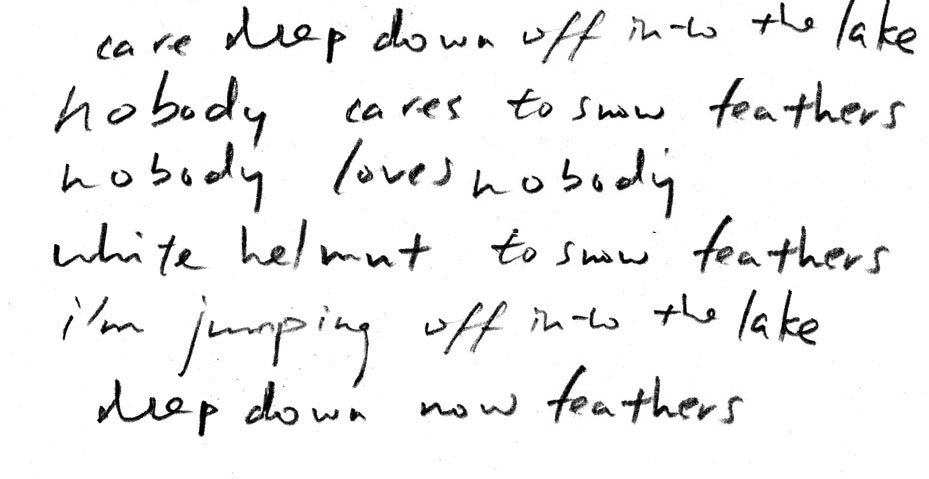 care deep down off in-to the lake
nobody cares to snow feathers
nobody loves nobody
white helmut to snow feathers
i'm jumping off in-to the lake
deep down now feathers